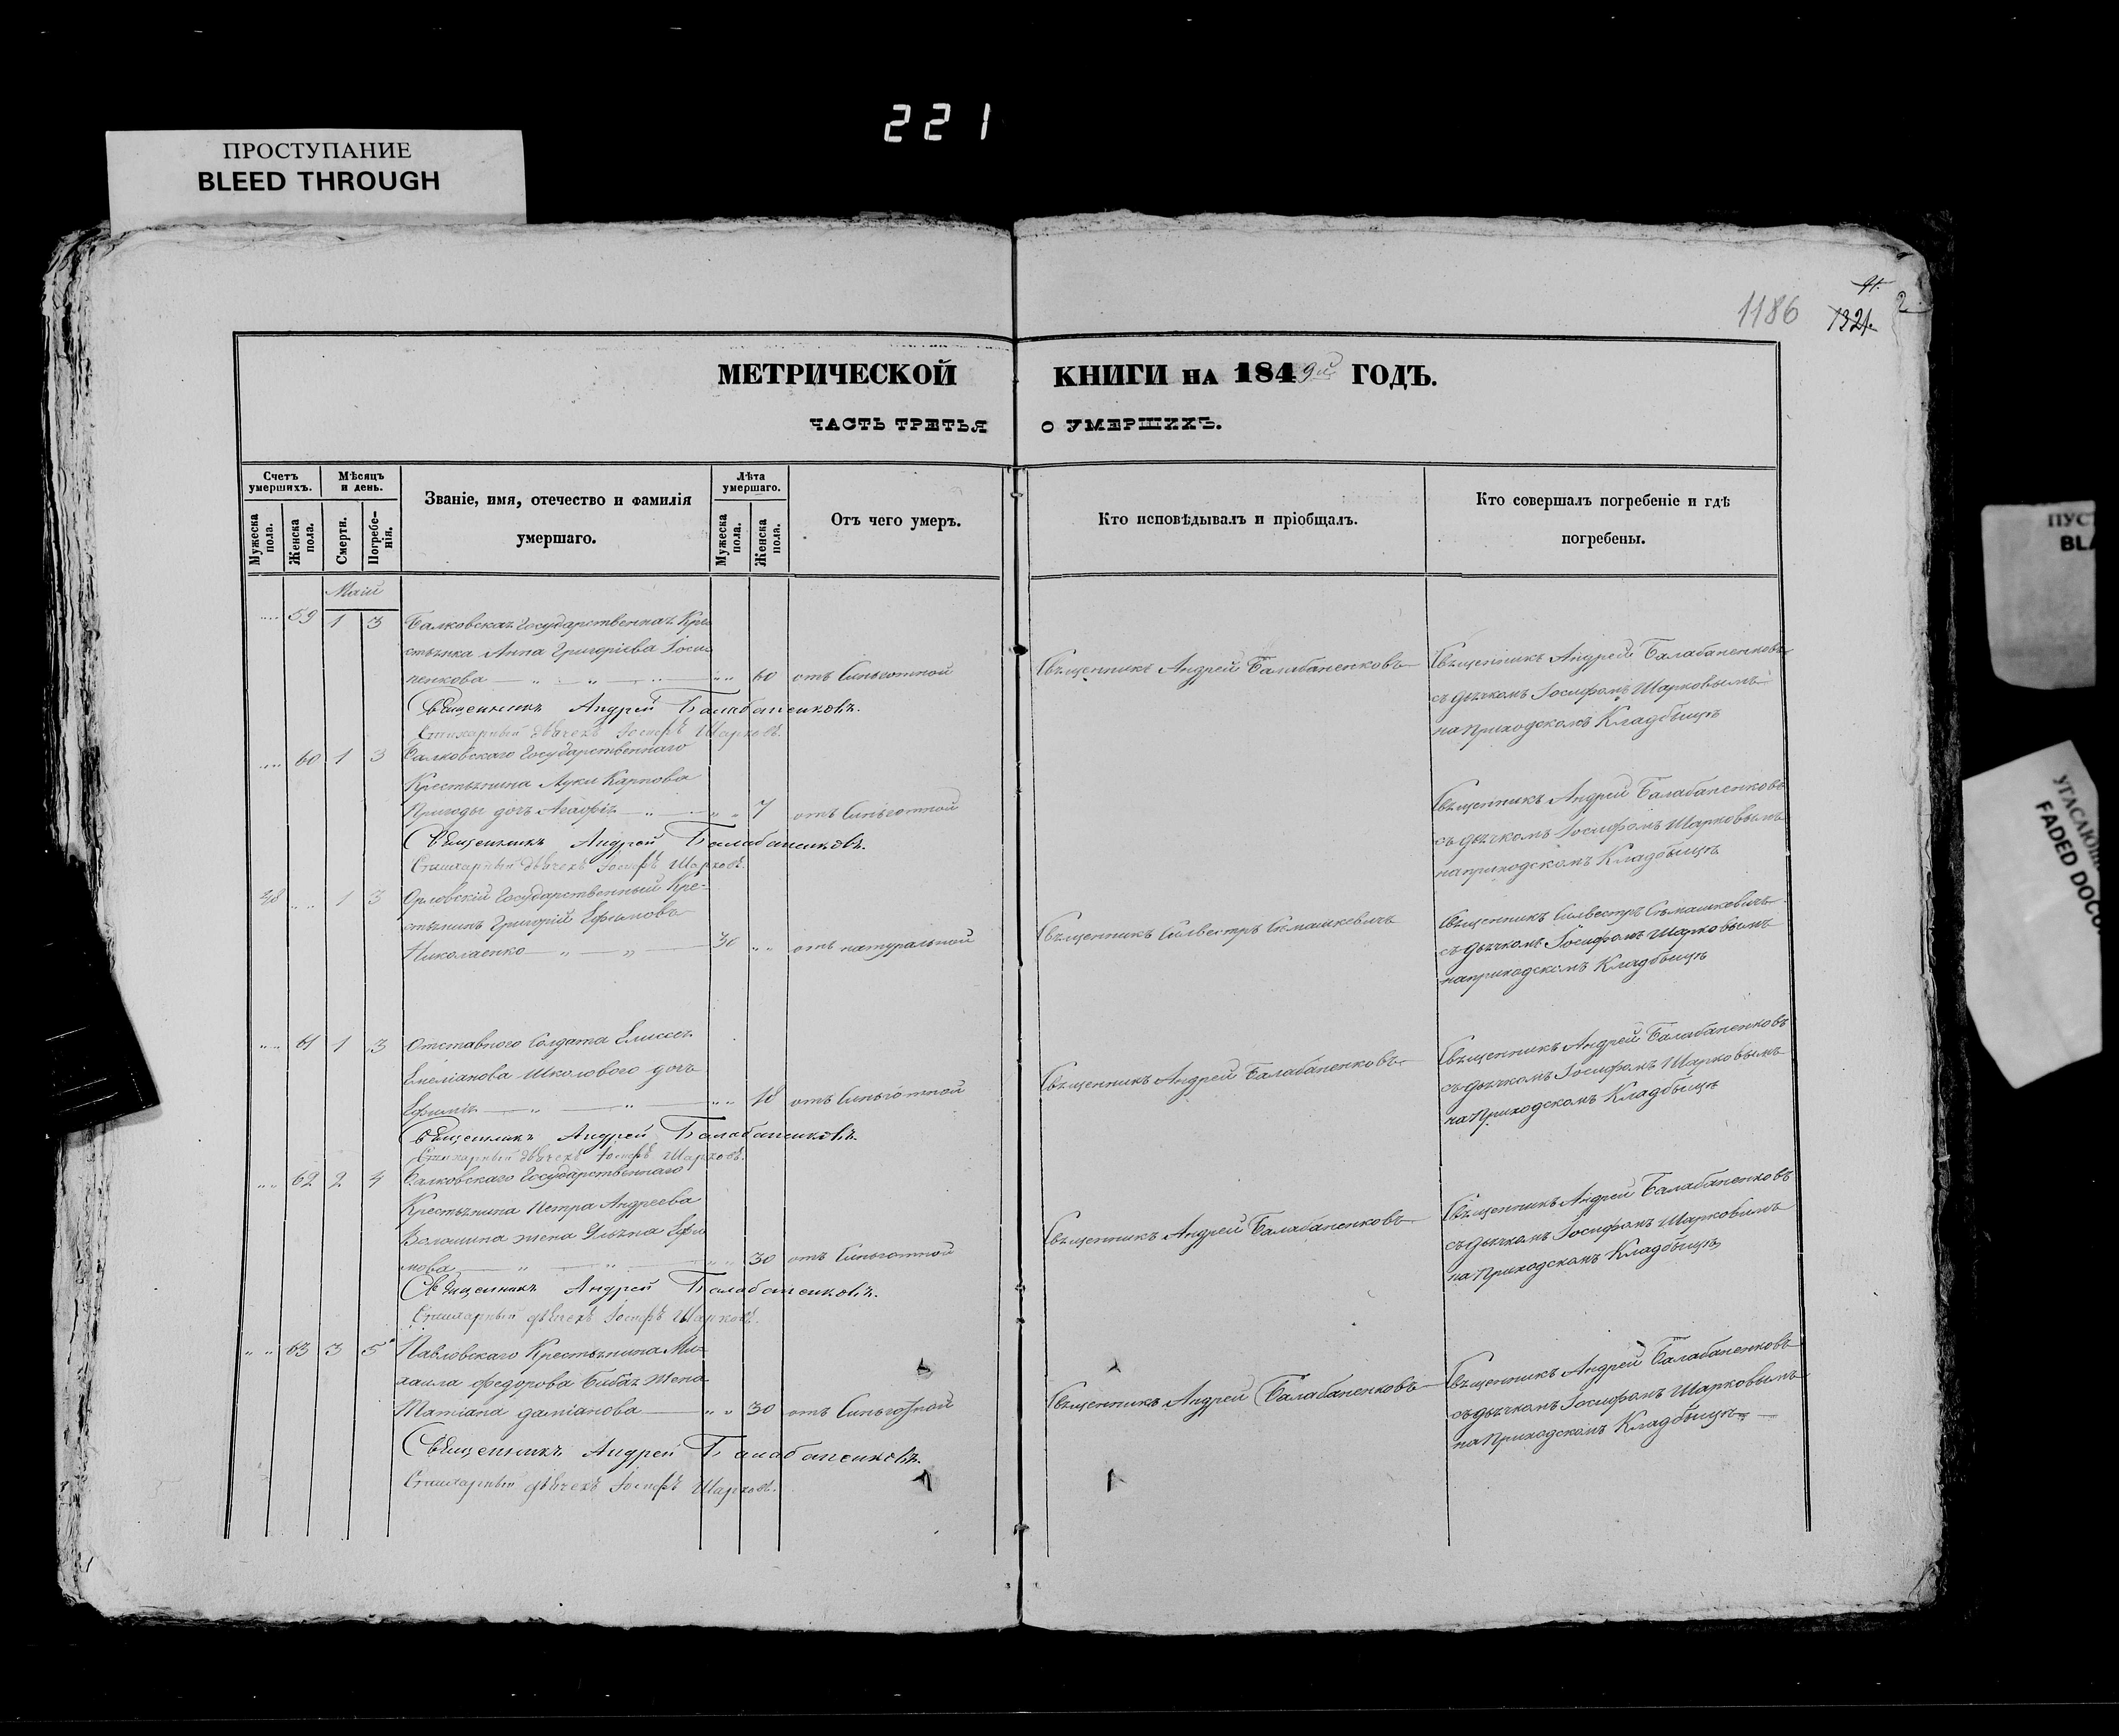 221
ПРОСТУПАНИЕ
BLEED THROUGH
1186
1321.
МЕТРИЧЕСКОЙ КНИГИ НА 1849й ГОДЪ.
ЧАСТЬ ТРЕТЬЯ О УМЕРШИХЪ.
Счетъ умершихъ.
Мѣсяцъ и день.
Званіе, имя, отечество и фамилія умершаго.
Лѣта умершаго.
Отъ чего умеръ.
Кто исповѣдывалъ и пріобщалъ.
Кто совершалъ погребеніе и гдѣ погребены.
Мужеска пола.
Женска пола.
Смерти.
Погребе-нія.
Мужеска пола.
Женска пола.
Маій
59 1 3 Балковская Государственная Кре-
стьянка Анна Григоріева
ненкова 60 отъ
Священникъ Андрей Балабаненковъ
Священникъ Андрей Балабаненковъ
съ дьячкомъ Іосифомъ Шарковымъ
на приходскомъ Кладбыщѣ
Священникъ Андрей Балабаненковъ.
Стихарный дьячекъ Іосифъ Шарковъ.
60 1 3 Балковскаго Государственнаго
Крестьянина Луки Карпова
Пригоды дочь Агафія 7 отъ
Священникъ Андрей Балабаненковъ
съ дьячкомъ Іосифомъ Шарковымъ
на приходскомъ Кладбыщѣ
Священникъ Андрей Балабаненковъ.
Стихарный дьячекъ Іосифъ Шарковъ.
48 1 3 Орловскій Государственный Кре-
стьянинъ Григорій Ефимовъ
Николаенко 30 отъ натуральной
Священникъ Сильвестръ Симашкевичъ
Священникъ Сильвестръ Симашкевичъ
съ дьячкомъ Іосифомъ Шарковымъ
на приходскомъ Кладбыщѣ
61 1 3 Отставного Солдата Елисея
Емеліанова Школового дочь
Ефимія 18 отъ
Священникъ Андрей Балабаненковъ
Священникъ Андрей Балабаненковъ
съ дьячкомъ Іосифомъ Шарковымъ
на приходскомъ Кладбыщѣ
Священникъ Андрей Балабаненковъ.
Стихарный дьячекъ Іосифъ Шарковъ.
62 2 4 Балковскаго Государственнаго
Крестьянина Петра Андреева
Волошина жена Ульяна Ефи
мова 30 отъ
Священникъ Андрей Балабаненковъ
Священникъ Андрей Балабаненковъ
съ дьячкомъ Іосифомъ Шарковымъ
на приходскомъ Кладбыщѣ
Священникъ Андрей Балабаненковъ.
Стихарный дьячекъ Іосифъ Шарковъ.
63 3 5 Павловскаго Крестьянина Ми-
хаила Федорова жена
Татіана Даміанова 30 отъ
Священникъ Андрей Балабаненковъ
Священникъ Андрей Балабаненковъ
съ дьячкомъ Іосифомъ Шарковымъ
на приходскомъ Кладбыщѣ
Священникъ Андрей Балабаненковъ.
Стихарный дьячекъ Іосифъ Шарковъ.
FADED